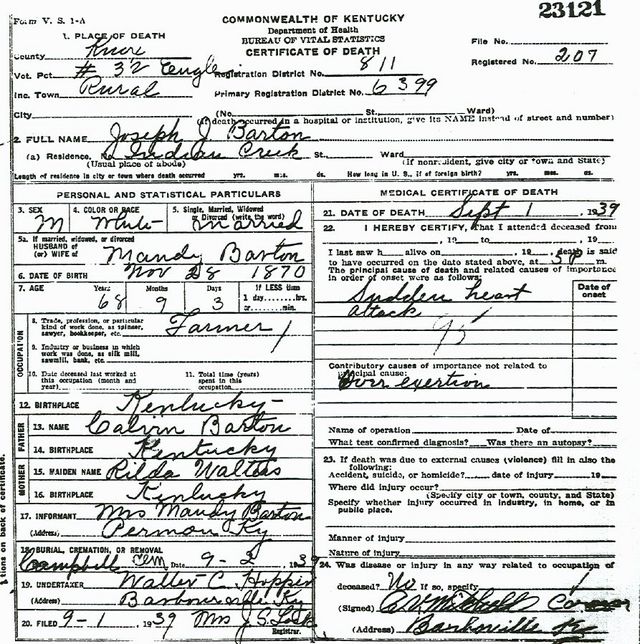 Form V. S. 1-A
COMMONWEALTH OF KENTUCKY
23121
Department of Health
BUREAU OF VITAL STATISTICS
CERTIFICATE OF DEATH
1. PLACE OF DEATH
County Knox
File No.
Registered No. 207
Vot. Pct # 32 Engle Registration District No. 811
Inc. Town Rural Primary Registration District No. 6399
City (No. St. Ward)
(If death occurred in a hospital or institution, give its NAME instead of street and number)
2. FULL NAME Joseph J Barton
(a) Residence. Indian Creek St. Ward
(Usual place of abode) (If nonresident, give city or town and State)
Length of residence in city or town where death occurred yrs. mos. ds. How long in U. S., if of foreign birth? yrs. mos. ds.
PERSONAL AND STATISTICAL PARTICULARS
3. SEX 4. COLOR OR RACE 5. Single, Married, Widowed or Divorced (write the word)
M White Married
5a. If married, widowed, or divorced
HUSBAND of
(or) WIFE of Mandy Barton
6. DATE OF BIRTH Nov 28 1870
7. AGE Years Months Days If LESS than
68 9 3 1 day hrs. or min.
OCCUPATION
8. Trade, profession, or particular kind of work done, as spinner, sawyer, bookkeeper, etc. Farmer
9. Industry or business in which work was done, as silk mill, sawmill, bank, etc.
10. Date deceased last worked at this occupation (month and year)
11. Total time (years) spent in this occupation
12. BIRTHPLACE Kentucky
FATHER
13. NAME Calvin Barton
14. BIRTHPLACE Kentucky
MOTHER
15. MAIDEN NAME Rilda Walters
16. BIRTHPLACE Kentucky
17. INFORMANT Mrs Mandy Barton
(Address) Permon Ky
18. BURIAL, CREMATION, OR REMOVAL
Campbell Cem Date 9-2, 1939
19. UNDERTAKER Walter C. Hopper
(Address) Barbourville Ky
20. FILED 9-1 1939 Mrs J. S. Lock
Registrar.
MEDICAL CERTIFICATE OF DEATH
21. DATE OF DEATH Sept 1, 1939
22. I HEREBY CERTIFY, That I attended deceased from
, 19 to , 19
I last saw h alive on , 19 death is said
to have occurred on the date stated above, at m.
The principal cause of death and related causes of importance in order of onset were as follows:
Date of onset
Sudden heart
attack
95
Contributory causes of importance not related to principal cause:
Over exertion
Name of operation Date of
What test confirmed diagnosis? Was there an autopsy?
23. If death was due to external causes (violence) fill in also the following:
Accident, suicide, or homicide? date of injury 19
Where did injury occur?
(Specify city or town, county, and State)
Specify whether injury occurred in industry, in home, or in public place.
Manner of injury
Nature of injury
24. Was disease or injury in any way related to occupation of deceased? No If so, specify
(Signed) Coroner
(Address) Barbourville Ky
tions on back of certificate.